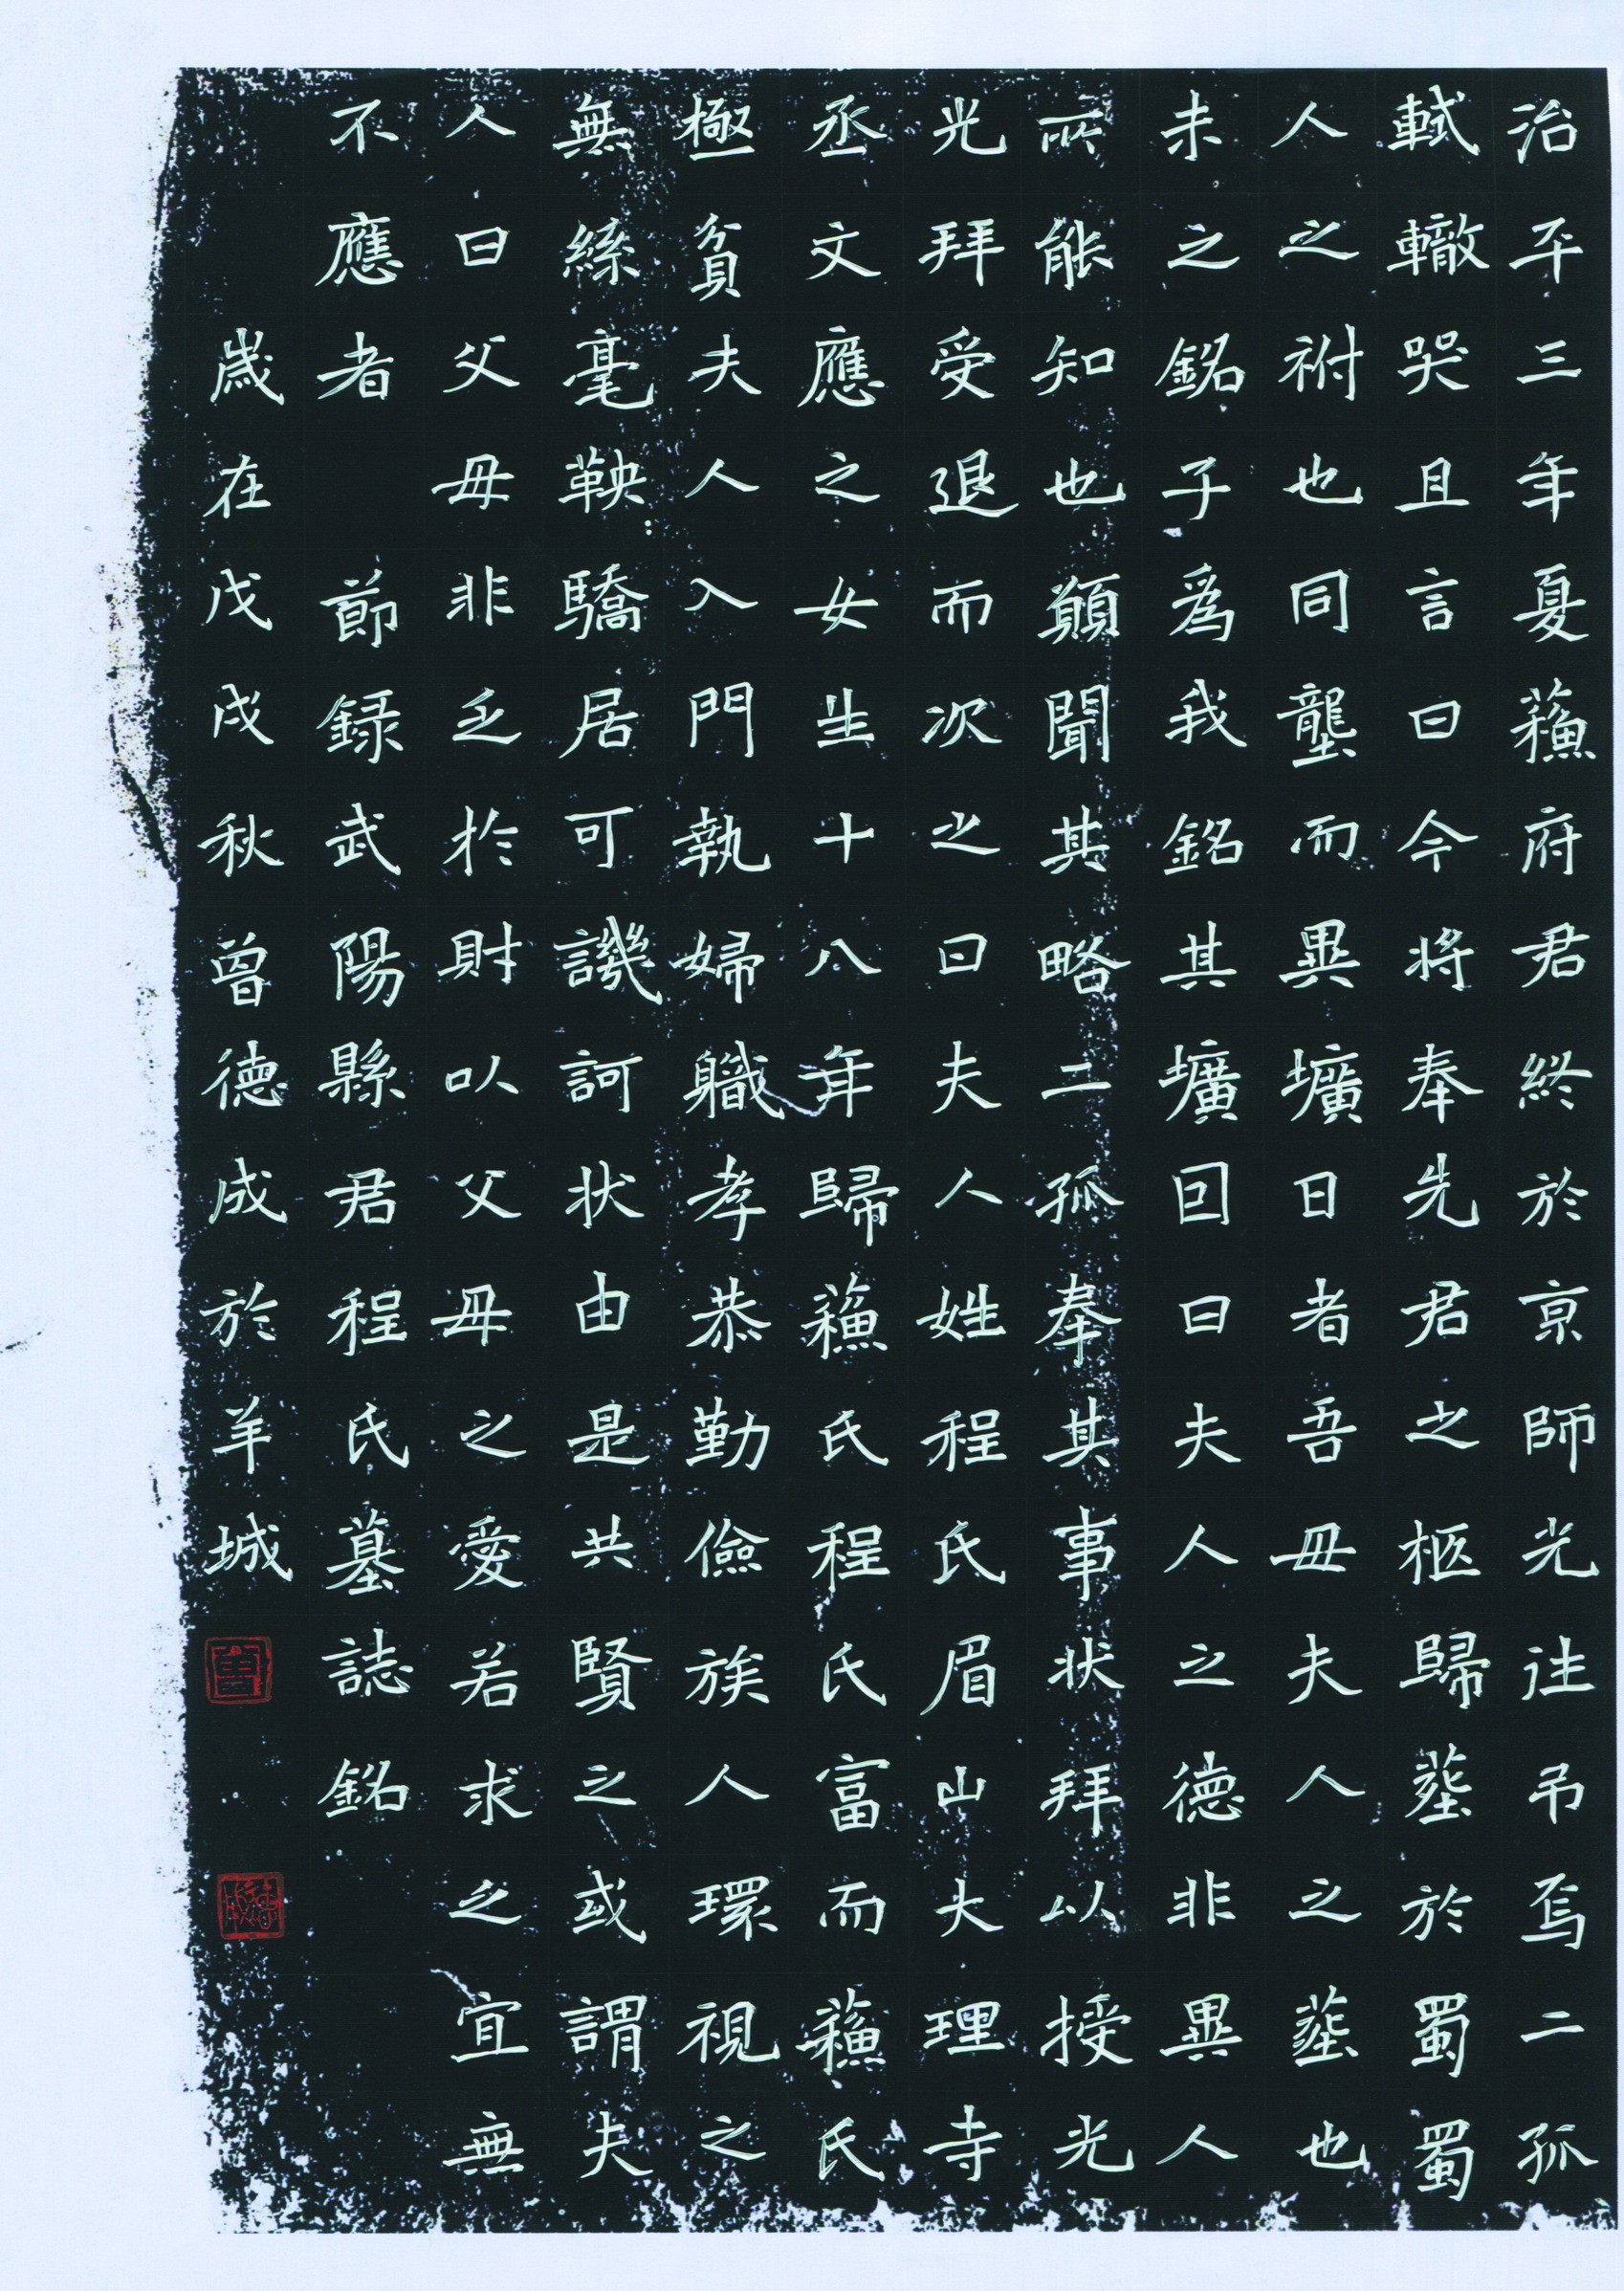 治平三年夏蘓府君終於京師光往弔焉二孤
軾轍哭且言曰今將奉先君之柩歸塟於蜀蜀
人之祔也同壟而異壙日者吾母夫人之塟也
未之銘子爲我銘其壙囙曰夫人之德非異人
所能知也願聞其略二孤奉其事状拜以授光
光拜受退而次之曰夫人姓程氏眉山大理寺
丞文應之女生十八年歸蘓氏程氏富而蘓氏
極貧夫人入門執婦職孝恭勤儉族人環視之
無絲毫鞅驕居可譏訶状由是共賢之或謂夫
人曰父母非乏於財以父母之愛若求之宜無
不應者 節録武陽縣君程氏墓誌銘
歲在戊戌秋曾德成於羊城
曾